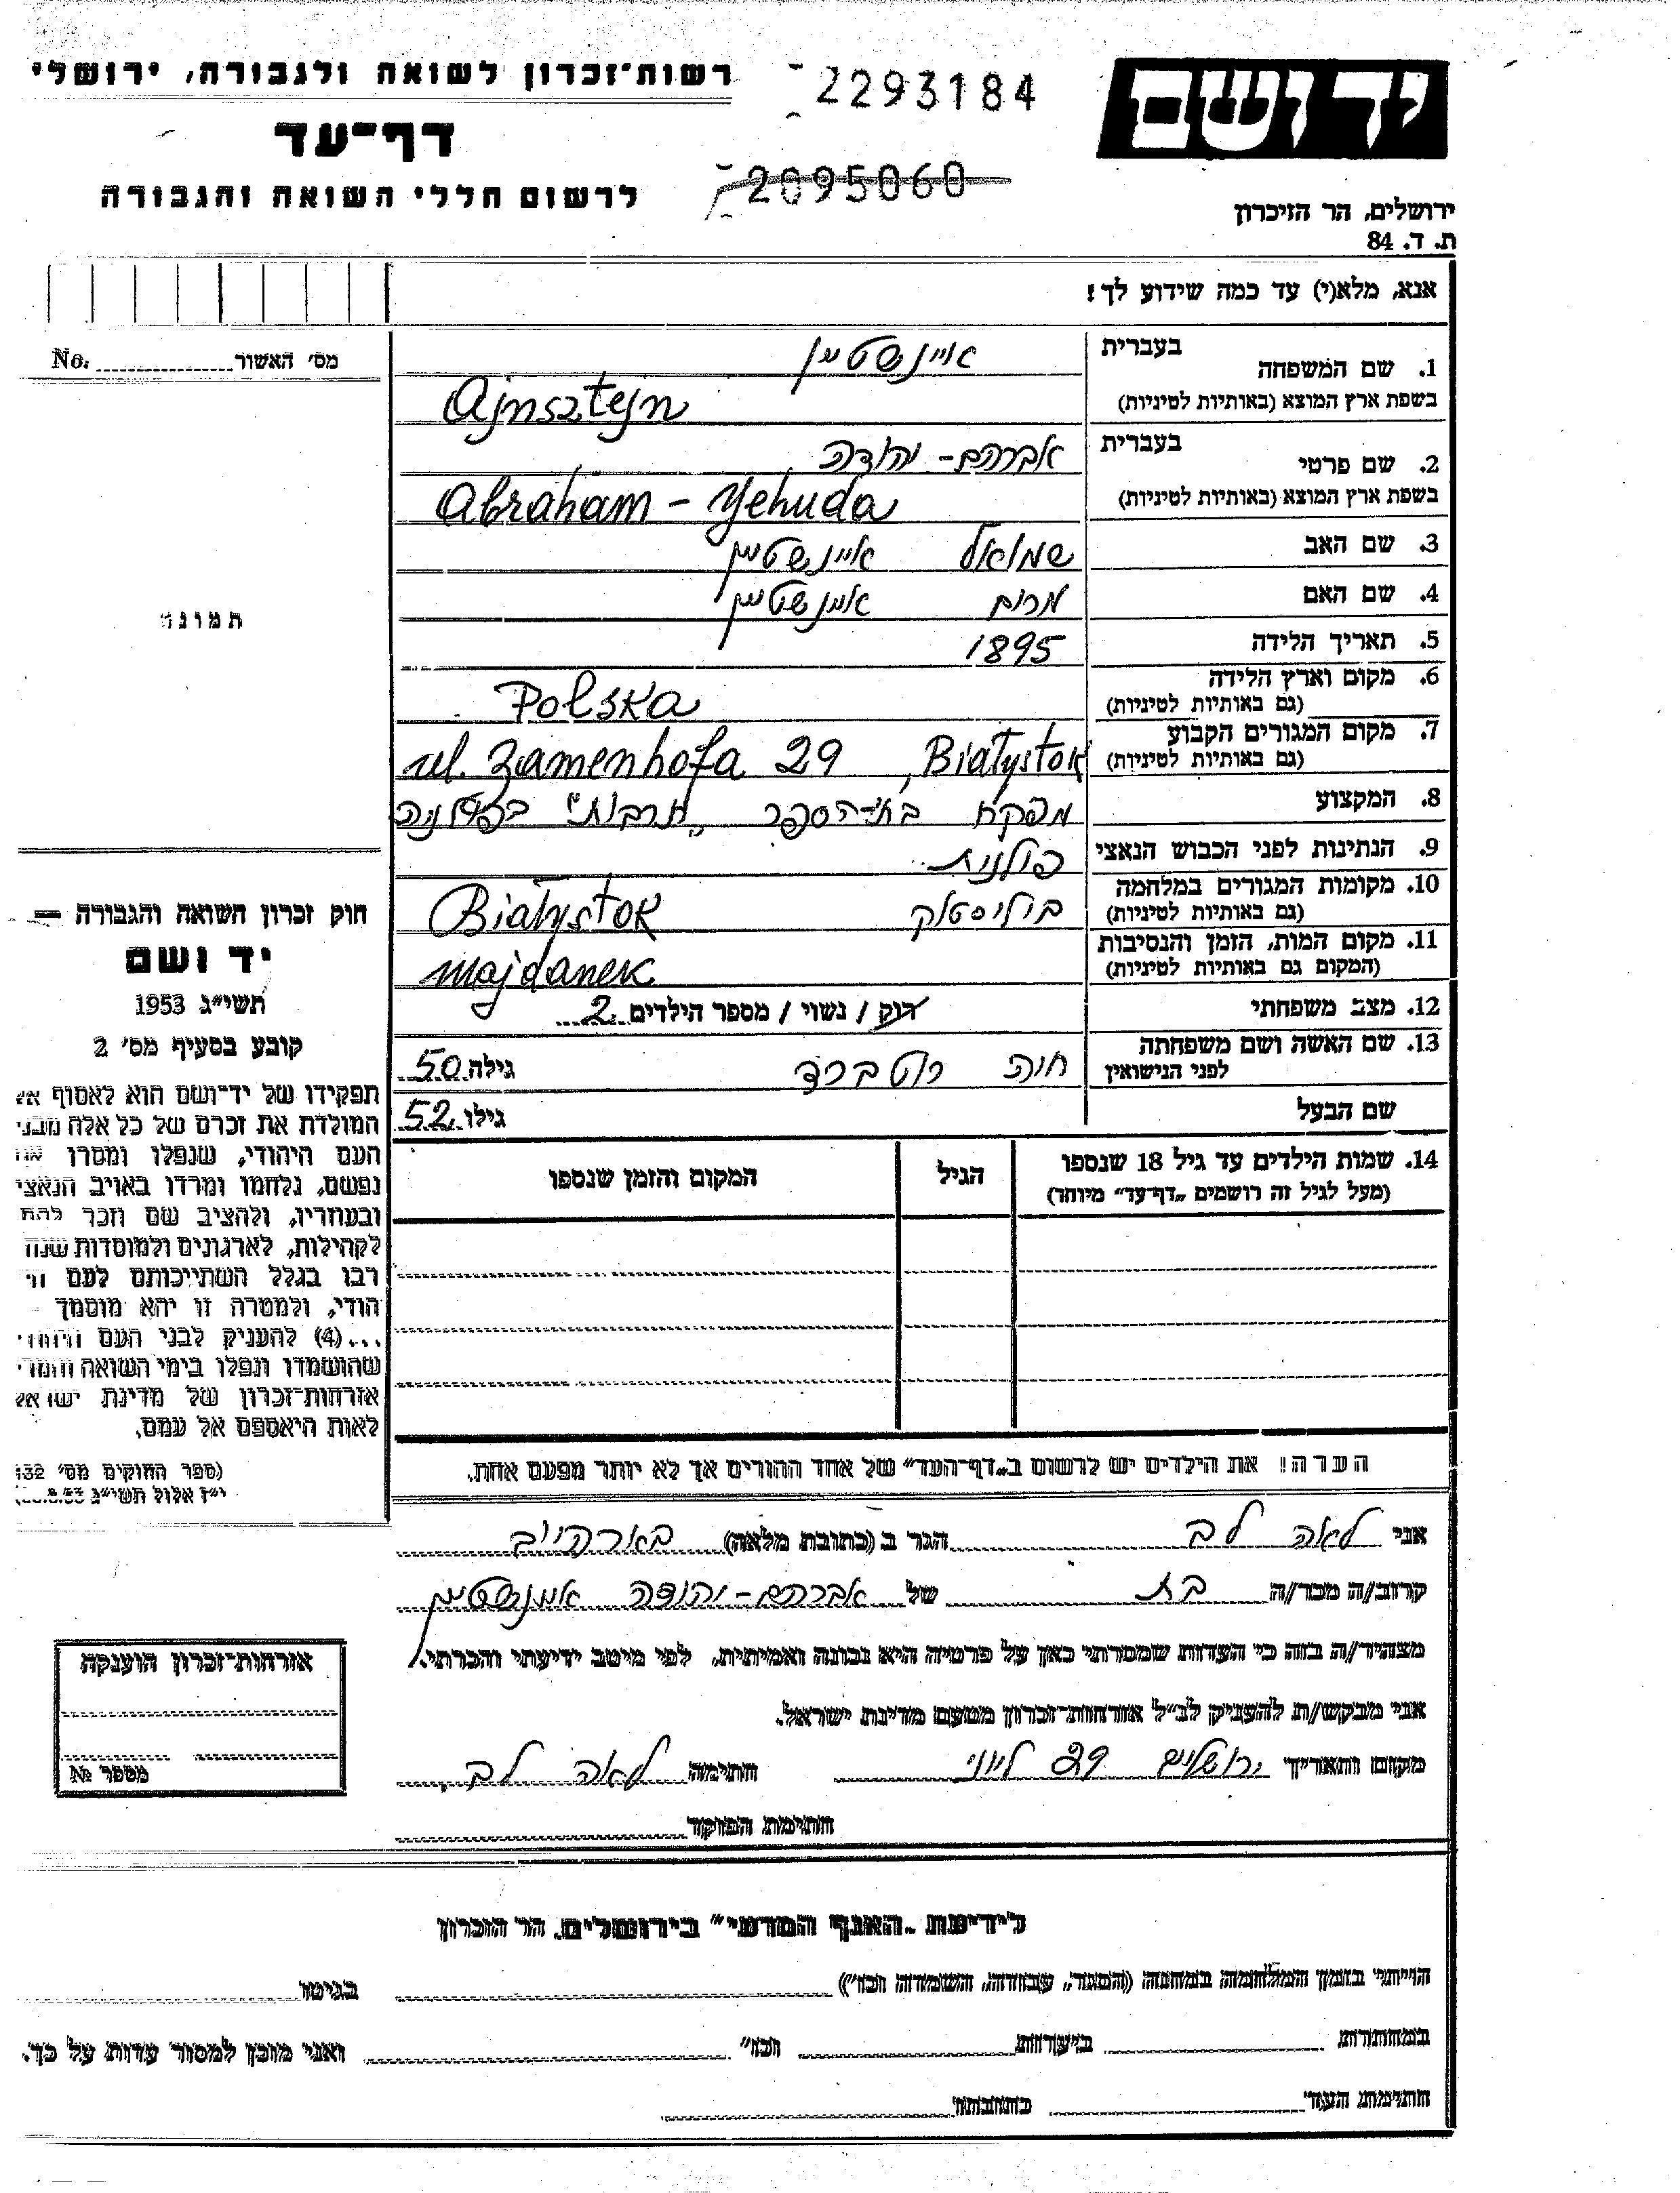 רשות־זכרון לשואה ולגבורה, ירושלי
2293184
יד ושם
דף־עד
2095060
לרשום חללי השואה והגבורה
ירושלים, הר הזיכרון
ת. ד. 84
אנא, מלא(י) עד כמה שידוע לך!
מס׳ האשור No.
1. שם המשפחה
בעברית איינשטיין
בשפת ארץ המוצא (באותיות לטיניות) Ajnsztejn
2. שם פרטי
בעברית אברהם - יהודה
בשפת ארץ המוצא (באותיות לטיניות) Abraham - Yehuda
3. שם האב שמואל איינשטיין
4. שם האם מרים איינשטיין
5. תאריך הלידה 1895
6. מקום וארץ הלידה
(גם באותיות לטיניות) Polska
7. מקום המגורים הקבוע
(גם באותיות לטיניות) Białystok, ul. Zamenhofa 29
8. המקצוע מפקח בתי-הספר "תרבות" בפולניה
9. הנתינות לפני הכבוש הנאצי פולנית
10. מקומות המגורים במלחמה
(גם באותיות לטיניות) ביליסטוק Białystok
11. מקום המות, הזמן והנסיבות
(המקום גם באותיות לטיניות) Majdanek
12. מצב משפחתי רוק / נשוי / מספר הילדים 2
13. שם האשה ושם משפחתה
לפני הנישואין חיה גילה 50
שם הבעל גילו 52
14. שמות הילדים עד גיל 18 שנספו
(מעל לגיל זה רושמים „דף־עד״ מיוחד)
הגיל
המקום והזמן שנספו
הערה! את הילדים יש לרשום ב„דף־העד״ של אחד ההורים אך לא יותר מפעם אחת.
תמונה
חוק זכרון השואה והגבורה —
יד ושם
תשי״ג 1953
קובע בסעיף מס׳ 2
תפקידו של יד־ושם הוא לאסוף אל
המולדת את זכרם של כל אלה מבני
העם היהודי, שנפלו ומסרו את
נפשם, נלחמו ומרדו באויב הנאצי
ובעוזריו, ולהציב שם וזכר להם
לקהילות, לארגונים ולמוסדות שנח
רבו בגלל השתייכותם לעם הי
הודי, ולמטרה זו יהא מוסמך
...(4) להעניק לבני העם היהודי
שהושמדו ונפלו בימי השואה והמרי
אזרחות־זכרון של מדינת ישראל
לאות היאספם אל עמם.
(ספר החוקים מס׳ 132
י״ז אלול תשי״ג 28.8.53)
אני לאה לב הגר ב (כתובת מלאה)
קרוב/ה מכר/ה בת של אברהם-יהודה איינשטיין
מצהיר/ה בזה כי העדות שמסרתי כאן על פרטיה היא נכונה ואמיתית, לפי מיטב ידיעתי והכרתי.
אני מבקש/ת להעניק לנ״ל אזרחות־זכרון מטעם מדינת ישראל.
מקום ותאריך ירושלים 29 ליוני חתימה לאה לב
חתימת הפוקד
אזרחות־זכרון הוענקה
מספר №
לידיעת „האגף המדעי״ בירושלים, הר הזכרון
הייתי בזמן המלחמה במחנה (הסגר, עבודה, השמדה וכו׳) בגיטו
במחתרת ביערות וכו׳ ואני מוכן למסור עדות על כך.
חתימת העד כתובתו